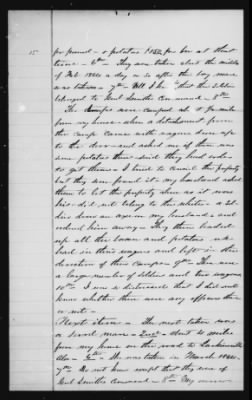 15
per pound - & potatoes $1.50 per bu at that
time - 6th They were taken about the middle
of Feb 1864 a day or so after the bay mare
was taken - 7th All I know that this soldier
belonged to Genl Smiths Command - 8th
The troops were camped about a mile
from my house - when a detachment from
the camp came with wagons drove up
to the door - and asked me if there was
some potatoes there - said they had orders
to get them - I tried to conceal the property
but they soon found it - my husband asked
them to let the property alone as it was
his - did not belong to the - a sol
dier drew an axe on my husband & and
ordered him away - They then loaded
up all the bacon and potatoes we
had in their wagons and left in the
direction of their Camp - 9th There was
a large number of soldiers and two wagons
10th I was so distressed that I did not
know whether there were any officers there
or not -
Next item - The next taken was
a Sorrel mare - 2nd - about 2 miles
from my house on the road to
Ala - 3rd She was taken in March 1864 -
7th Do not know except that they were of
Genl Smiths Command - 8th My